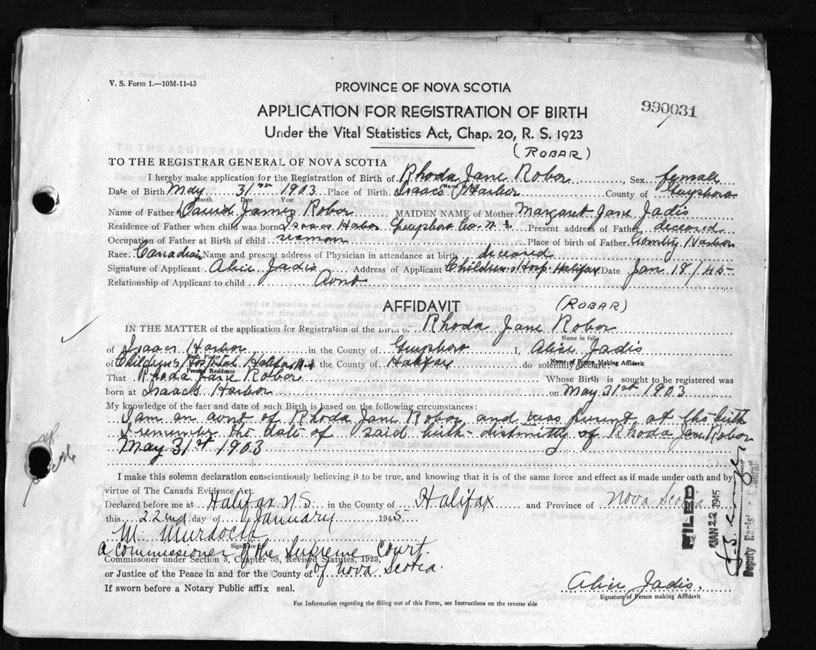 V. S. Form 1.—10M-11-43
PROVINCE OF NOVA SCOTIA
990031
APPLICATION FOR REGISTRATION OF BIRTH
Under the Vital Statistics Act, Chap. 20, R. S. 1923
(ROBAR)
TO THE REGISTRAR GENERAL OF NOVA SCOTIA
I hereby make application for the Registration of Birth of Rhoda Jane Robor, Sex female
Date of Birth May 31st 1903 Place of Birth Isaacs Harbor County of Guysboro
Month Date Year
Name of Father David James Robor MAIDEN NAME of Mother Margaret Jane Jadis
Residence of Father when child was born Isaacs Habor Guysboro Co. N.S Present address of Father deceored
Occupation of Father at Birth of child seamon Place of birth of Father Harbor
Race Canadian Name and present address of Physician in attendance at birth deceored
Signature of Applicant Alice Jadis Address of Applicant Childrens Hosp. Halifax Date Jan 18/45-
Relationship of Applicant to child Aont
AFFIDAVIT
(ROBAR)
IN THE MATTER of the application for Registration of the Birth of Rhoda Jane Robor
Name in full
of Isaacs Harbor in the County of Guysboro I, Alice Jadis
Name of Person Making Affidavit
of Children's Hospital Halifax N.S in the County of Halifax do solemnly declare:
Present Residence
That Rhoda Jane Robor Whose Birth is sought to be registered was
born at Isaacs Harbor on May 31st 1903
My knowledge of the fact and date of such Birth is based on the following circumstances:
I am an aont of Rhoda Jane Robor and was present at the birth
I remember the date of said birth- distinctly of Rhoda Jane Robor
May 31st 1903
I make this solemn declaration conscientiously believing it to be true, and knowing that it is of the same force and effect as if made under oath and by
virtue of The Canada Evidence Act.
Declared before me at Halifax N.S in the County of Halifax and Province of Nova Scotia
this 22nd day of January 1945
M. Murdoch
a commissioner of the Supreme Court
Commissioner under Section 5, Chapter 38, Revised Statutes, 1923,
of Nova Scotia.
or Justice of the Peace in and for the County of
If sworn before a Notary Public affix seal.
Alice Jadis.
Signature of Person making Affidavit
For Information regarding the filling out of this Form, see Instructions on the reverse side
FILED
JAN 22 1945